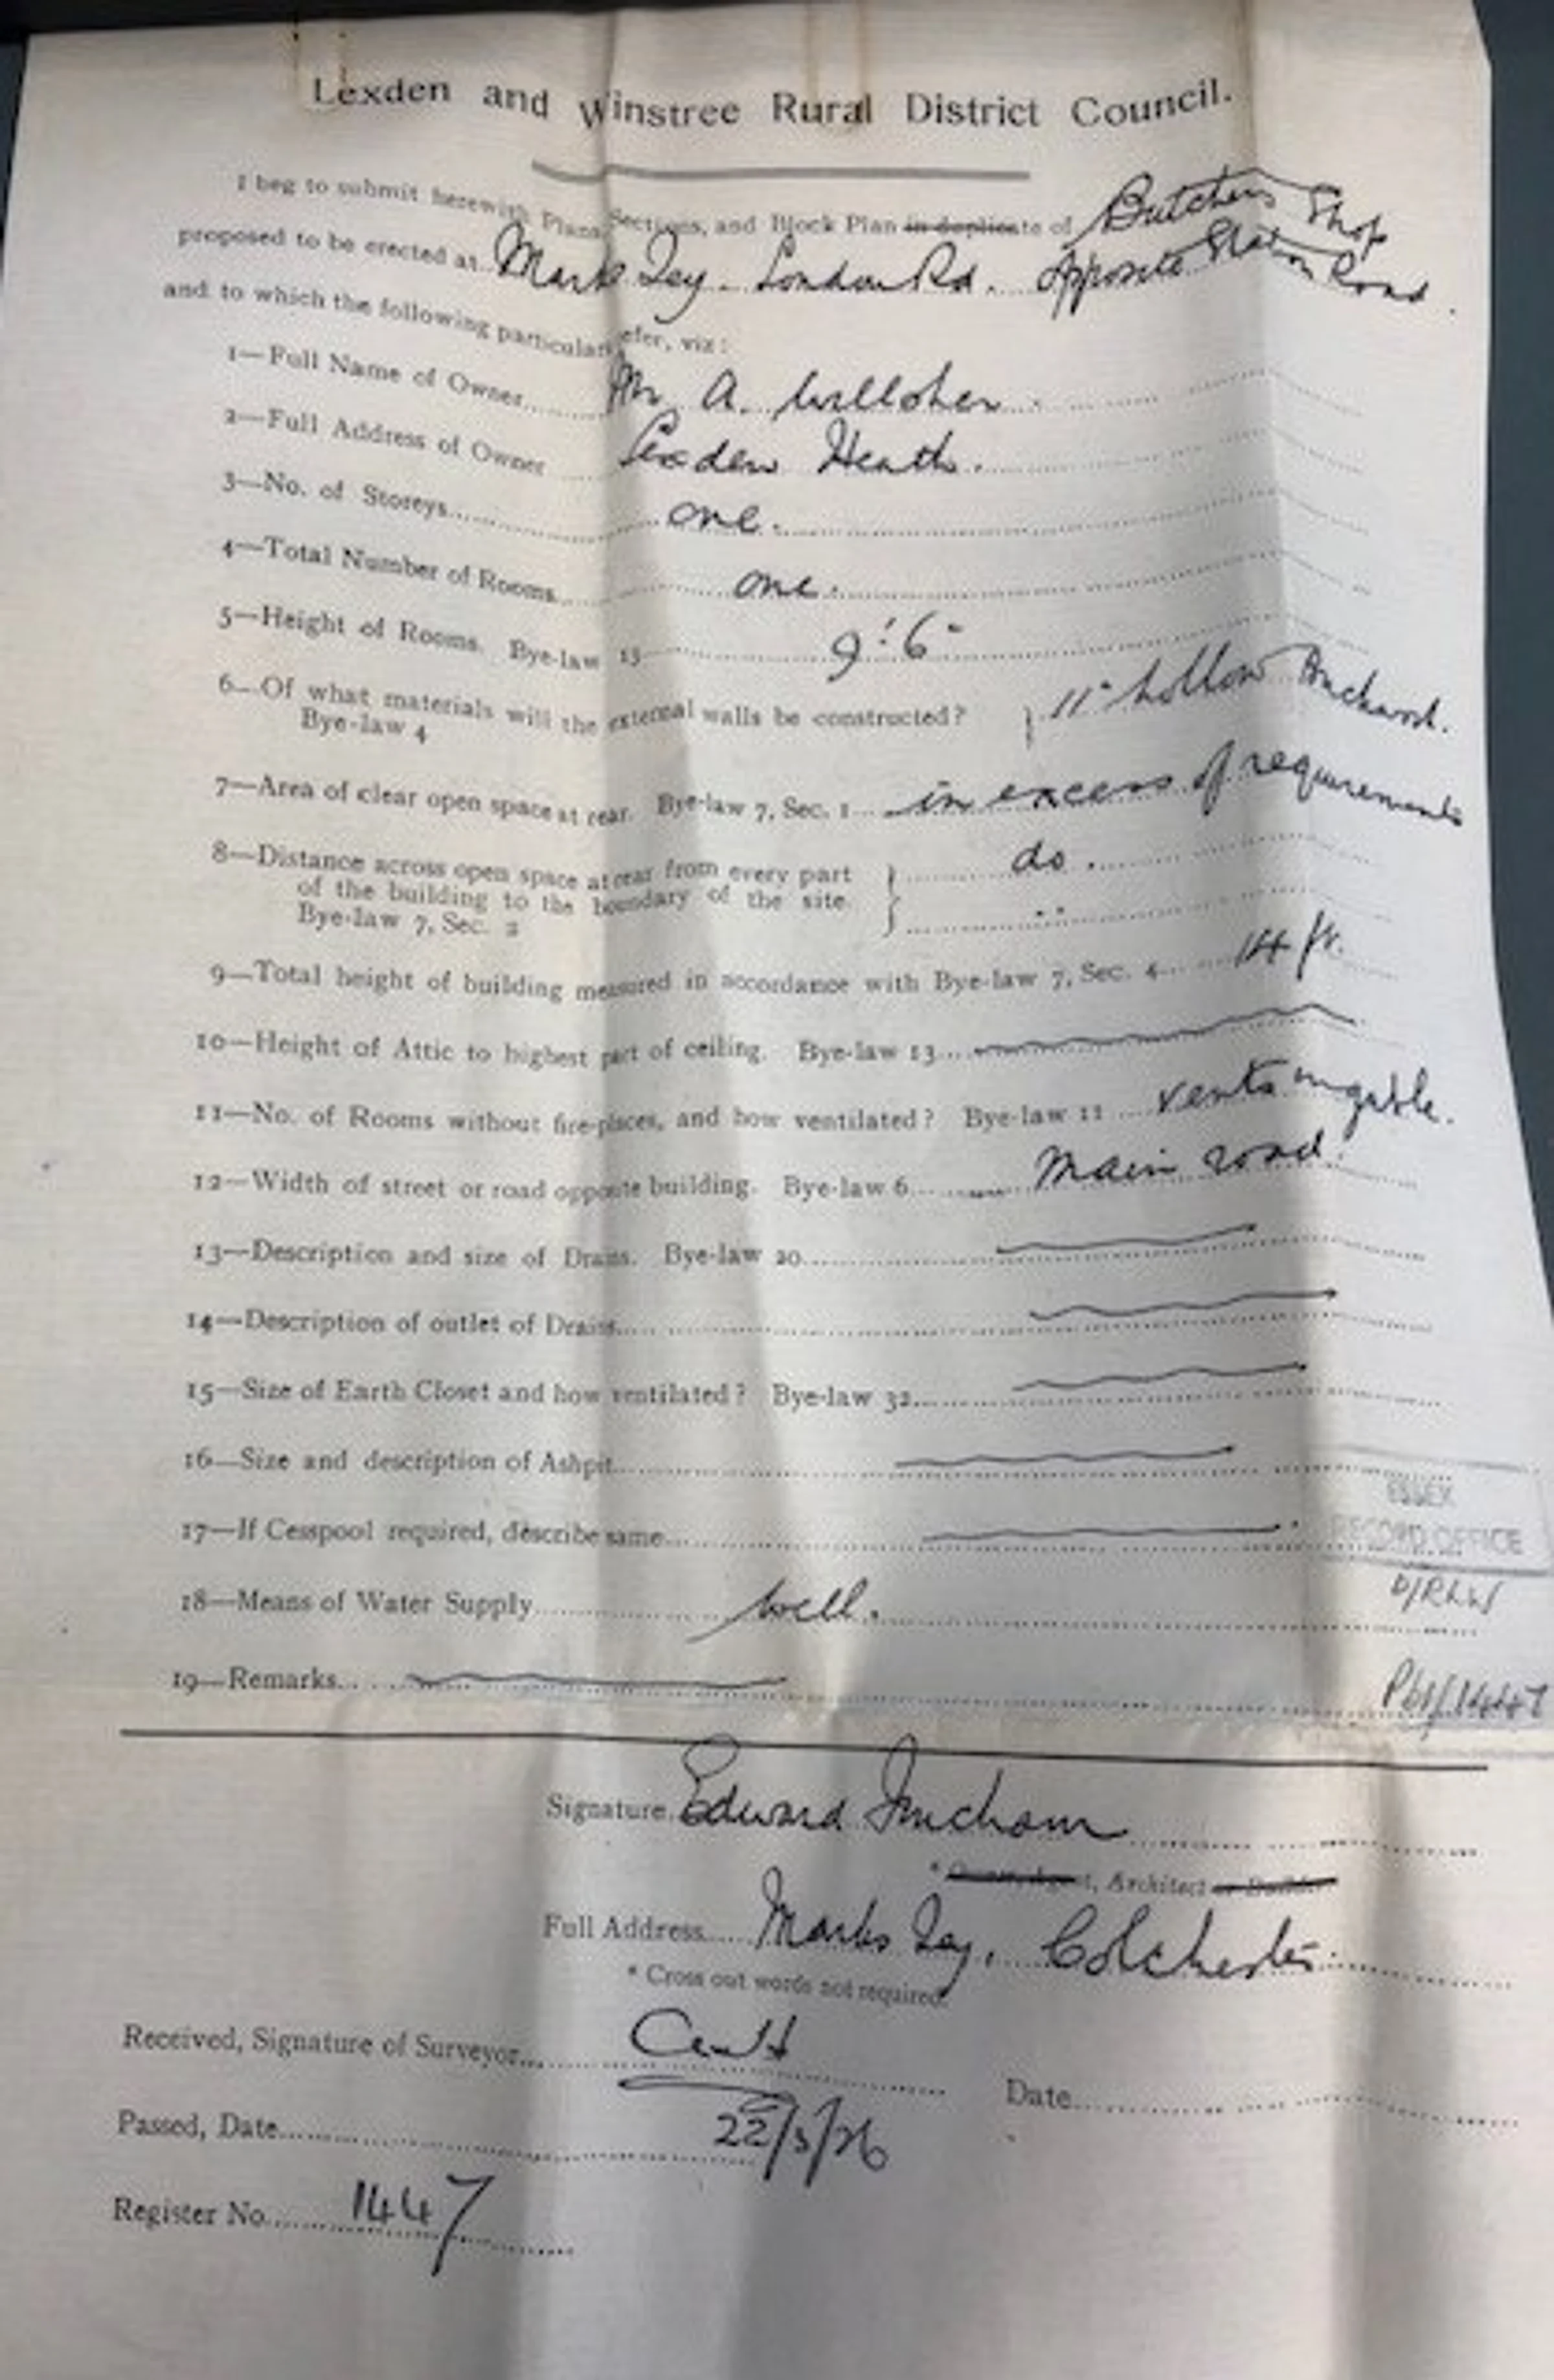 Lexden and Winstree Rural District Council.
I beg to submit herewith Plans, Sections, and Block Plan in duplicate of Butchers Shop
proposed to be erected at Marks Tey. London Rd. Opposite Station Road.
and to which the following particulars refer, viz:
1—Full Name of Owner Mr A.
2—Full Address of Owner Lexden Heath.
3—No. of Storeys one.
4—Total Number of Rooms one.
5—Height of Rooms. Bye-law 13 9'.6"
6—Of what materials will the external walls be constructed? } 11" hollow Brickwork.
Bye-law 4
7—Area of clear open space at rear. Bye-law 7, Sec. 1 in excess of requirements
8—Distance across open space at rear from every part } do.
of the building to the boundary of the site.
Bye-law 7, Sec. 2
9—Total height of building measured in accordance with Bye-law 7, Sec. 4 14 ft.
10—Height of Attic to highest part of ceiling. Bye-law 13
11—No. of Rooms without fire-places, and how ventilated? Bye-law 11 vents in gable.
12—Width of street or road opposite building. Bye-law 6 Main road.
13—Description and size of Drains. Bye-law 20
14—Description of outlet of Drains
15—Size of Earth Closet and how ventilated? Bye-law 32
16—Size and description of Ashpit
17—If Cesspool required, describe same
ESSEX
RECORD OFFICE
18—Means of Water Supply well.
D/RLW
19—Remarks
Pb1/1447
Signature Edward
* Owner, Agent, Architect or Builder
Full Address Marks Tey, Colchester.
* Cross out words not required.
Received, Signature of Surveyor
Date
Passed, Date 22/3/26
Register No. 1447